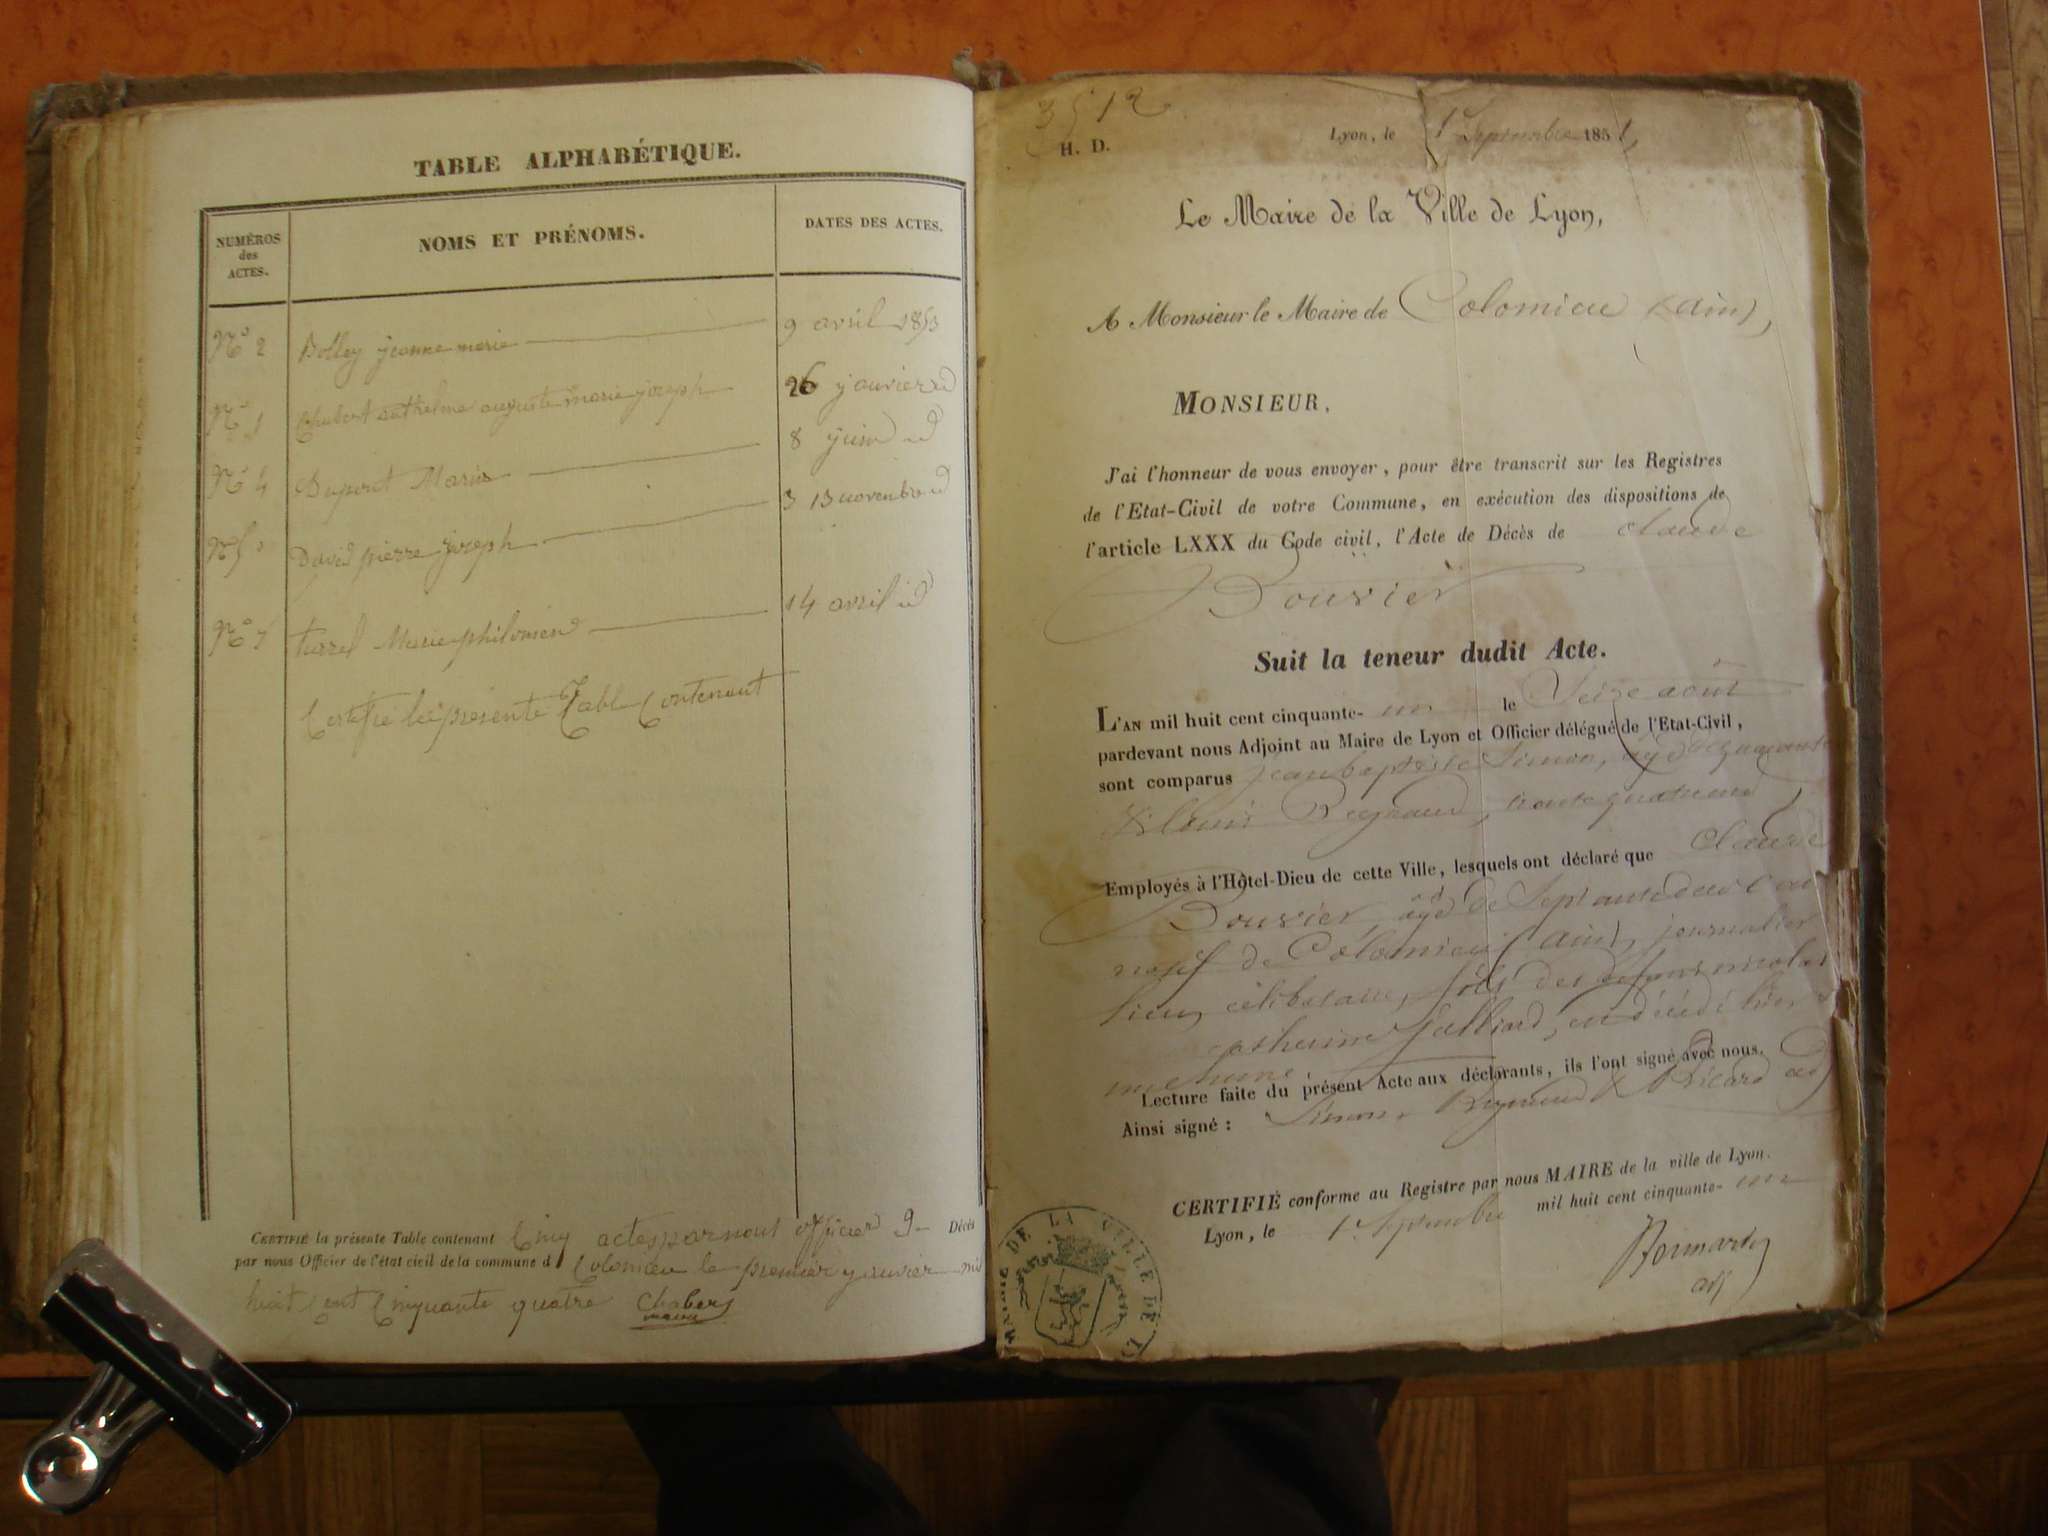 TABLE ALPHABÉTIQUE.
NUMÉROS des ACTES.
NOMS ET PRÉNOMS.
DATES DES ACTES.
N° 2 Bolley jeanne marie 9 avril 1853
N° 1 Chabert anthelme auguste marie joseph 26 janvier id
N° 4 Dupont Marie 8 juin id
N° 5 David pierre joseph 13 novembre id
turrel Marie philomene 14 avril id
Certifié la présente Table Contenant
CERTIFIÉ la présente Table contenant Cinq actes par nous officier Décès
par nous Officier de l'état civil de la commune d Colomieu le premier janvier mil
huit Cent Cinquante quatre Chabert
maire
3512
H. D.
Lyon, le 1er Septembre 1851,
Le Maire de la Ville de Lyon,
A Monsieur le Maire de Colomieu (ain),
MONSIEUR,
J'ai l'honneur de vous envoyer, pour être transcrit sur les Registres
de l'Etat-Civil de votre Commune, en exécution des dispositions de
l'article LXXX du Code civil, l'Acte de Décès de claude
Douvier
Suit la teneur dudit Acte.
L'AN mil huit cent cinquante- un le Seize août
pardevant nous Adjoint au Maire de Lyon et Officier délégué de l'Etat-Civil,
sont comparus jean baptiste Simon, agé de quarante
& louis Reynaud, trente quatre
Employés à l'Hôtel-Dieu de cette Ville, lesquels ont déclaré que Claude
Douvier, agé de Septante deux
natif de Colomieu (ain), journalier
célibataire, fils des defunts nicolas
catherine Galliard, est décédé hier
une heure.
Lecture faite du présent Acte aux déclarants, ils l'ont signé avec nous.
Ainsi signé : Simon, Reynaud & Ricard adj
CERTIFIÉ conforme au Registre par nous MAIRE de la ville de Lyon.
Lyon, le 1er Septembre mil huit cent cinquante- un
adj
MAIRIE DE LA VILLE DE